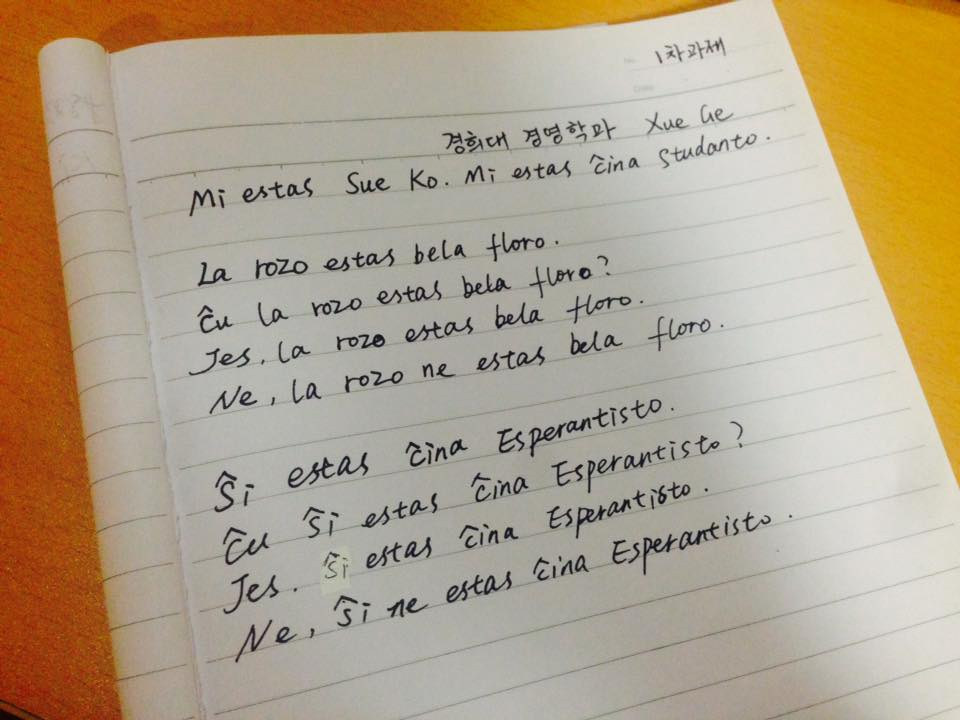 1차과제
경희대 경영학과 Xue Ge
Mi estas Sue Ko. Mi estas ĉina Studanto.
La rozo estas bela floro.
Ĉu la rozo estas bela floro?
Jes, la rozo estas bela floro.
Ne, la rozo ne estas bela floro.
Ŝi estas ĉina Esperantisto.
Ĉu Ŝi estas ĉina Esperantisto?
Jes. Ŝi estas ĉina Esperantisto.
Ne, Ŝi ne estas ĉina Esperantisto.